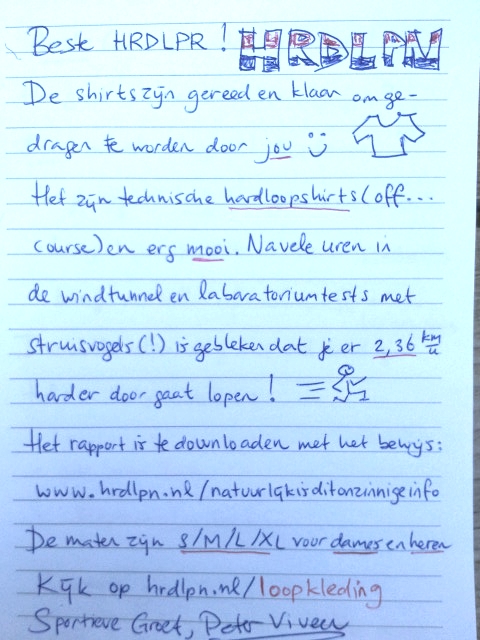 Beste HRDLPR! HRDLPN
De shirts zijn gereed en klaar om ge-
dragen te worden door jou
Het zijn technische hardloopshirts (off...
course) en erg mooi. Na vele uren in
de windtunnel en laboratoriumtests met
struisvogels(!) is gebleken dat je er 2,36 km/u
harder door gaat lopen!
Het rapport is te downloaden met het bewijs:
www.hrdlpn.nl/natuurlijkisditonzinnigeinfo
De maten zijn S/M/L/XL voor dames en heren
Kijk op hrdlpn.nl/loopkleding
Sportieve Groet, Peter Viveen